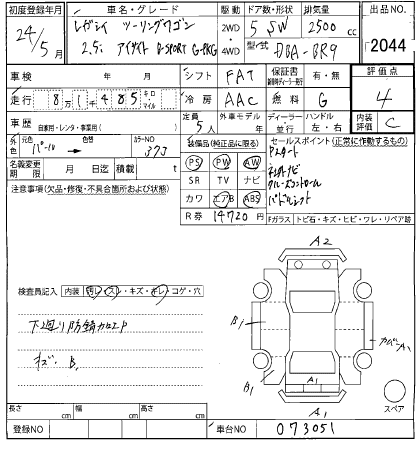 初度登録年月 車名・グレード 駆動 ドア数・形状 排気量 出品NO.
24年5月 レガシィ ツーリングワゴン 2WD 5 SW 2500 cc
2.5i アイサイト B-SPORT G-PKG 4WD 型式 DBA-BR9 2044
車検 年 月 シフト FAT 保証書 有・無 評価点
走行 8万1千485 キロ マイル 冷房 AAC 燃料 G 4
車歴 自家用・レンタ・事業用( ) 定員 5人 外車モデル 年 ディーラー 並行 ハンドル 左・右 内装評価 C
外色 元色 パール → 色替 カラーNO 37J 装備品(純正品に限る) セールスポイント(正常に作動するもの)
名義変更期限 月 日迄 積載 t PS PW AW
注意事項(欠品・修復・不具合箇所および状態) SR TV ナビ クルーズコントロール
カワ エアB ABS パドルシフト
R券 14720円 Fガラス トビ石・キズ・ヒビ・ワレ・リペア跡
A2
検査員記入 内装 汚レ・スレ・キズ・キレ・コゲ・穴
下廻り防錆加工P B1 カバーA1
キズ B1 B1 A1
スペア
長さ cm 幅 cm 高さ cm A1
登録NO 車台NO 073051